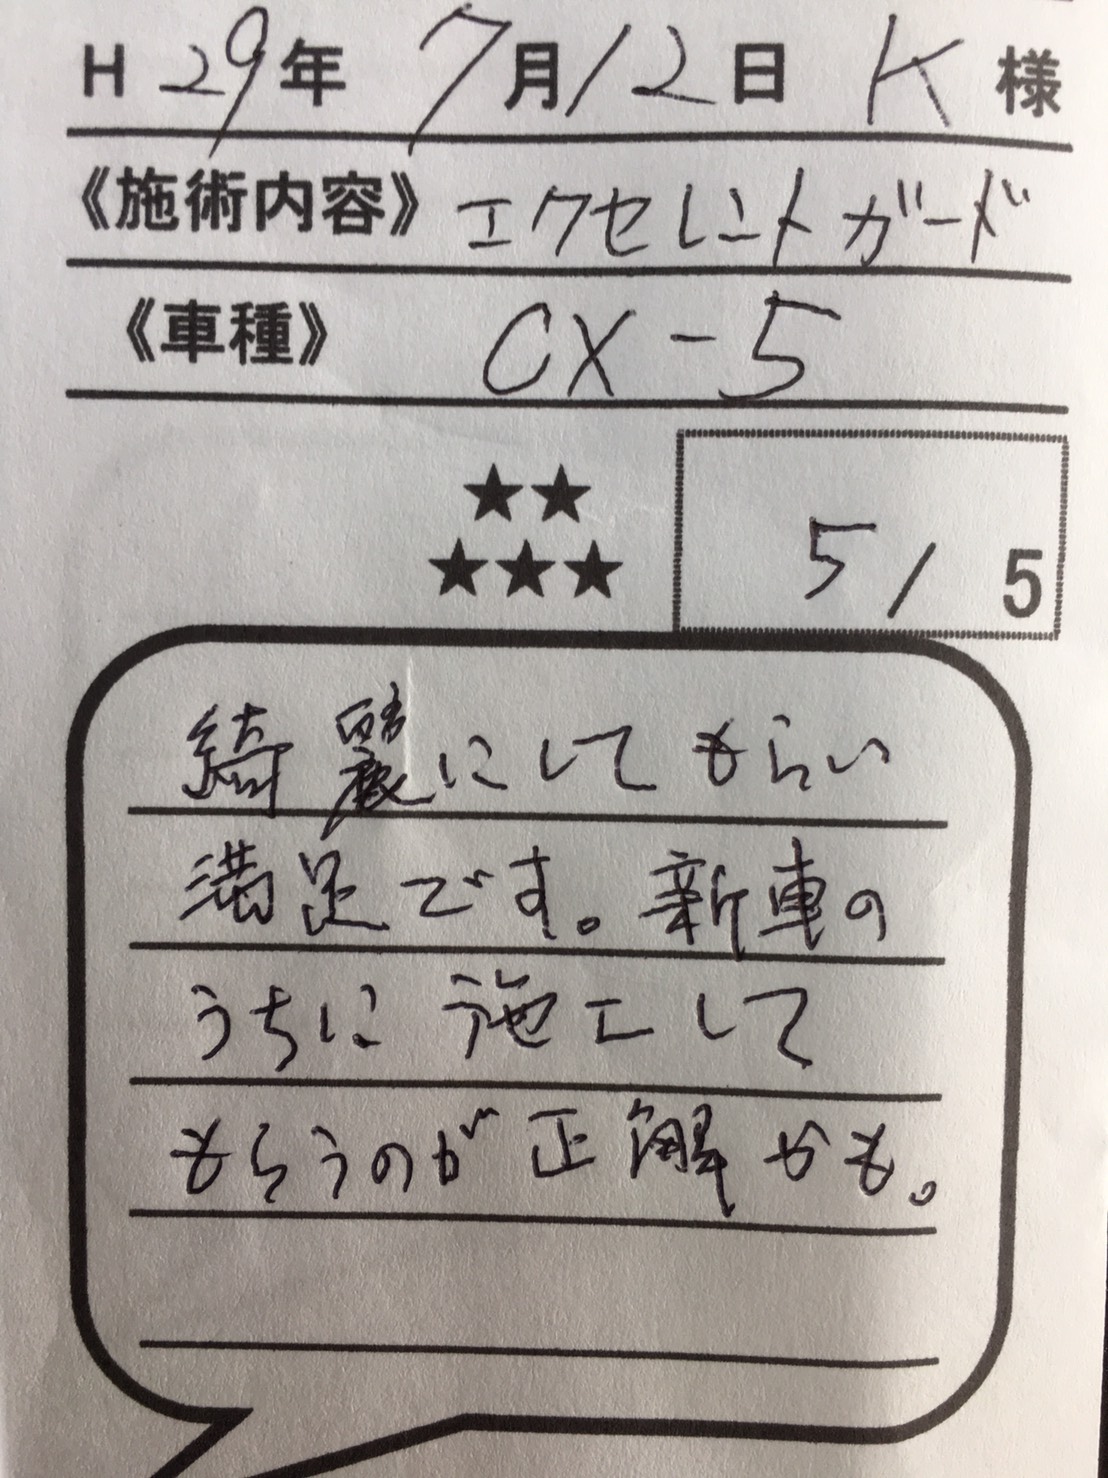 H 29年 7月12日 K 様
《施術内容》 エクセレントガード
《車種》 CX-5
★★
★★★
5/5
綺麗にしてもらい
満足です。新車の
うちに施工して
もらうのが正解かも。